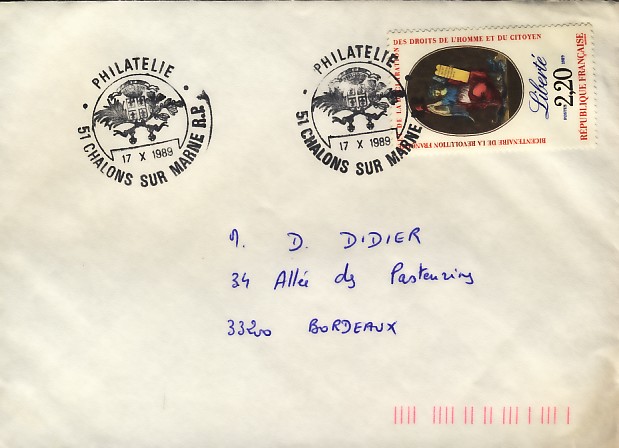 PHILATELIE
51 CHALONS SUR MARNE R.P.
17 X 1989
PHILATELIE
51 CHALONS SUR MARNE
17 X 1989
DES DROITS DE L'HOMME ET DU CITOYEN
BICENTENAIRE DE LA REVOLUTION FRAN
Liberté
POSTES 2,20 1989
RÉPUBLIQUE FRANÇAISE
M. D. DIDIER
34 Allée des
33200 BORDEAUX